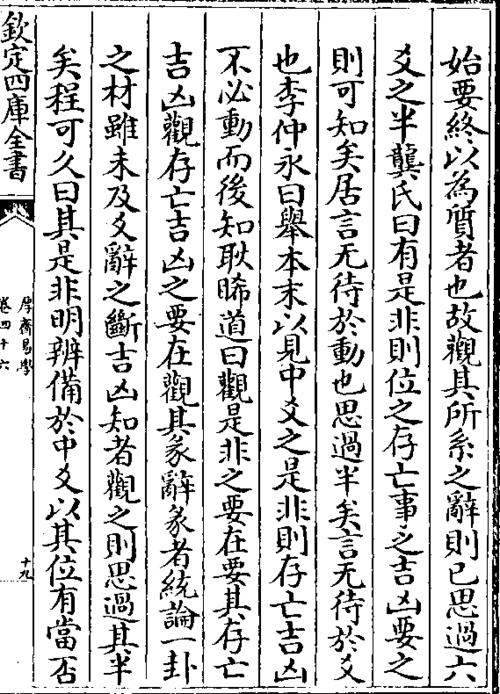 始要終以為質者也故觀其所系之辭則已思過六
爻之半龔氏曰有是非則位之存亡事之吉凶要之
則可知矣居言无待於動也思過半矣言无待於爻
也李仲永曰舉本末以見中爻之是非則存亡吉凶
不必動而後知耿睎道曰觀是非之要在要其存亡
吉凶觀存亡吉凶之要在觀其彖辭彖者統論一卦
之材雖未及爻辭之斷吉凶知者觀之則思過其半
矣程可久曰其是非明辨備於中爻以其位有當否
欽定四庫全書
厚齋易學
卷四十六
十九